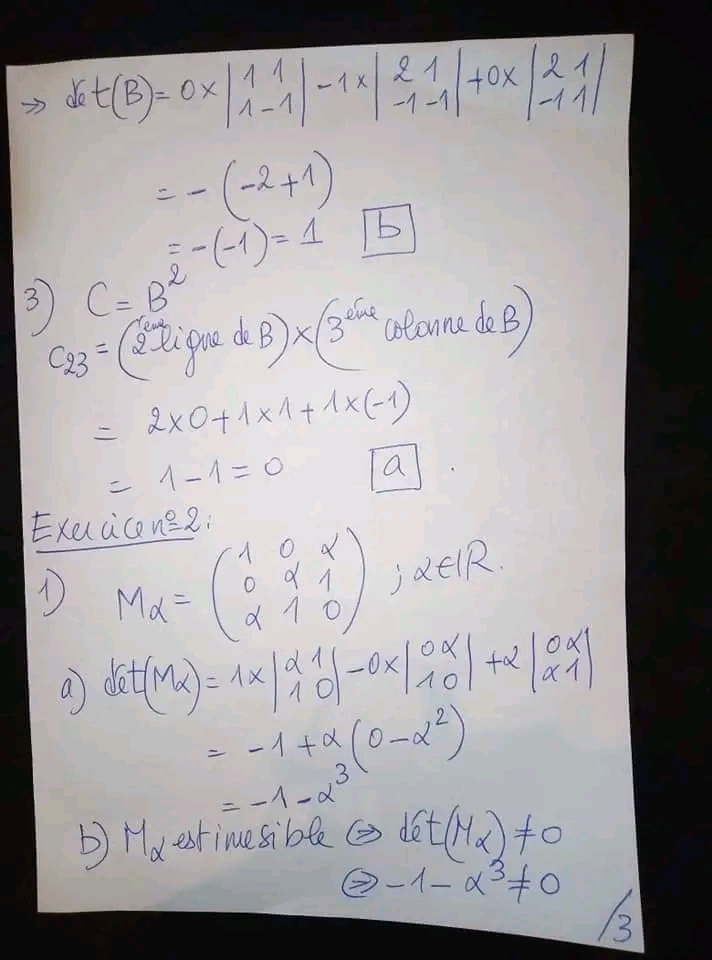 => dét(B) = 0 × |1 1 ; 1 -1| - 1 × |2 1 ; -1 -1| + 0 × |2 1 ; -1 1|
= - (-2 + 1)
= -(-1) = 1 b
3) C = B²
C₂₃ = (2ème ligne de B) × (3ème colonne de B)
= 2 × 0 + 1 × 1 + 1 × (-1)
= 1 - 1 = 0 a .
Exercice n°2:
1) Mα = (1 0 α ; 0 α 1 ; α 1 0) ; α ∈ IR.
a) dét(Mα) = 1 × |α 1 ; 1 0| - 0 × |0 α ; 1 0| + α |0 α ; α 1|
= -1 + α (0 - α²)
= -1 - α³
b) Mα est inversible ⇔ dét(Mα) ≠ 0
⇔ -1 - α³ ≠ 0
/3